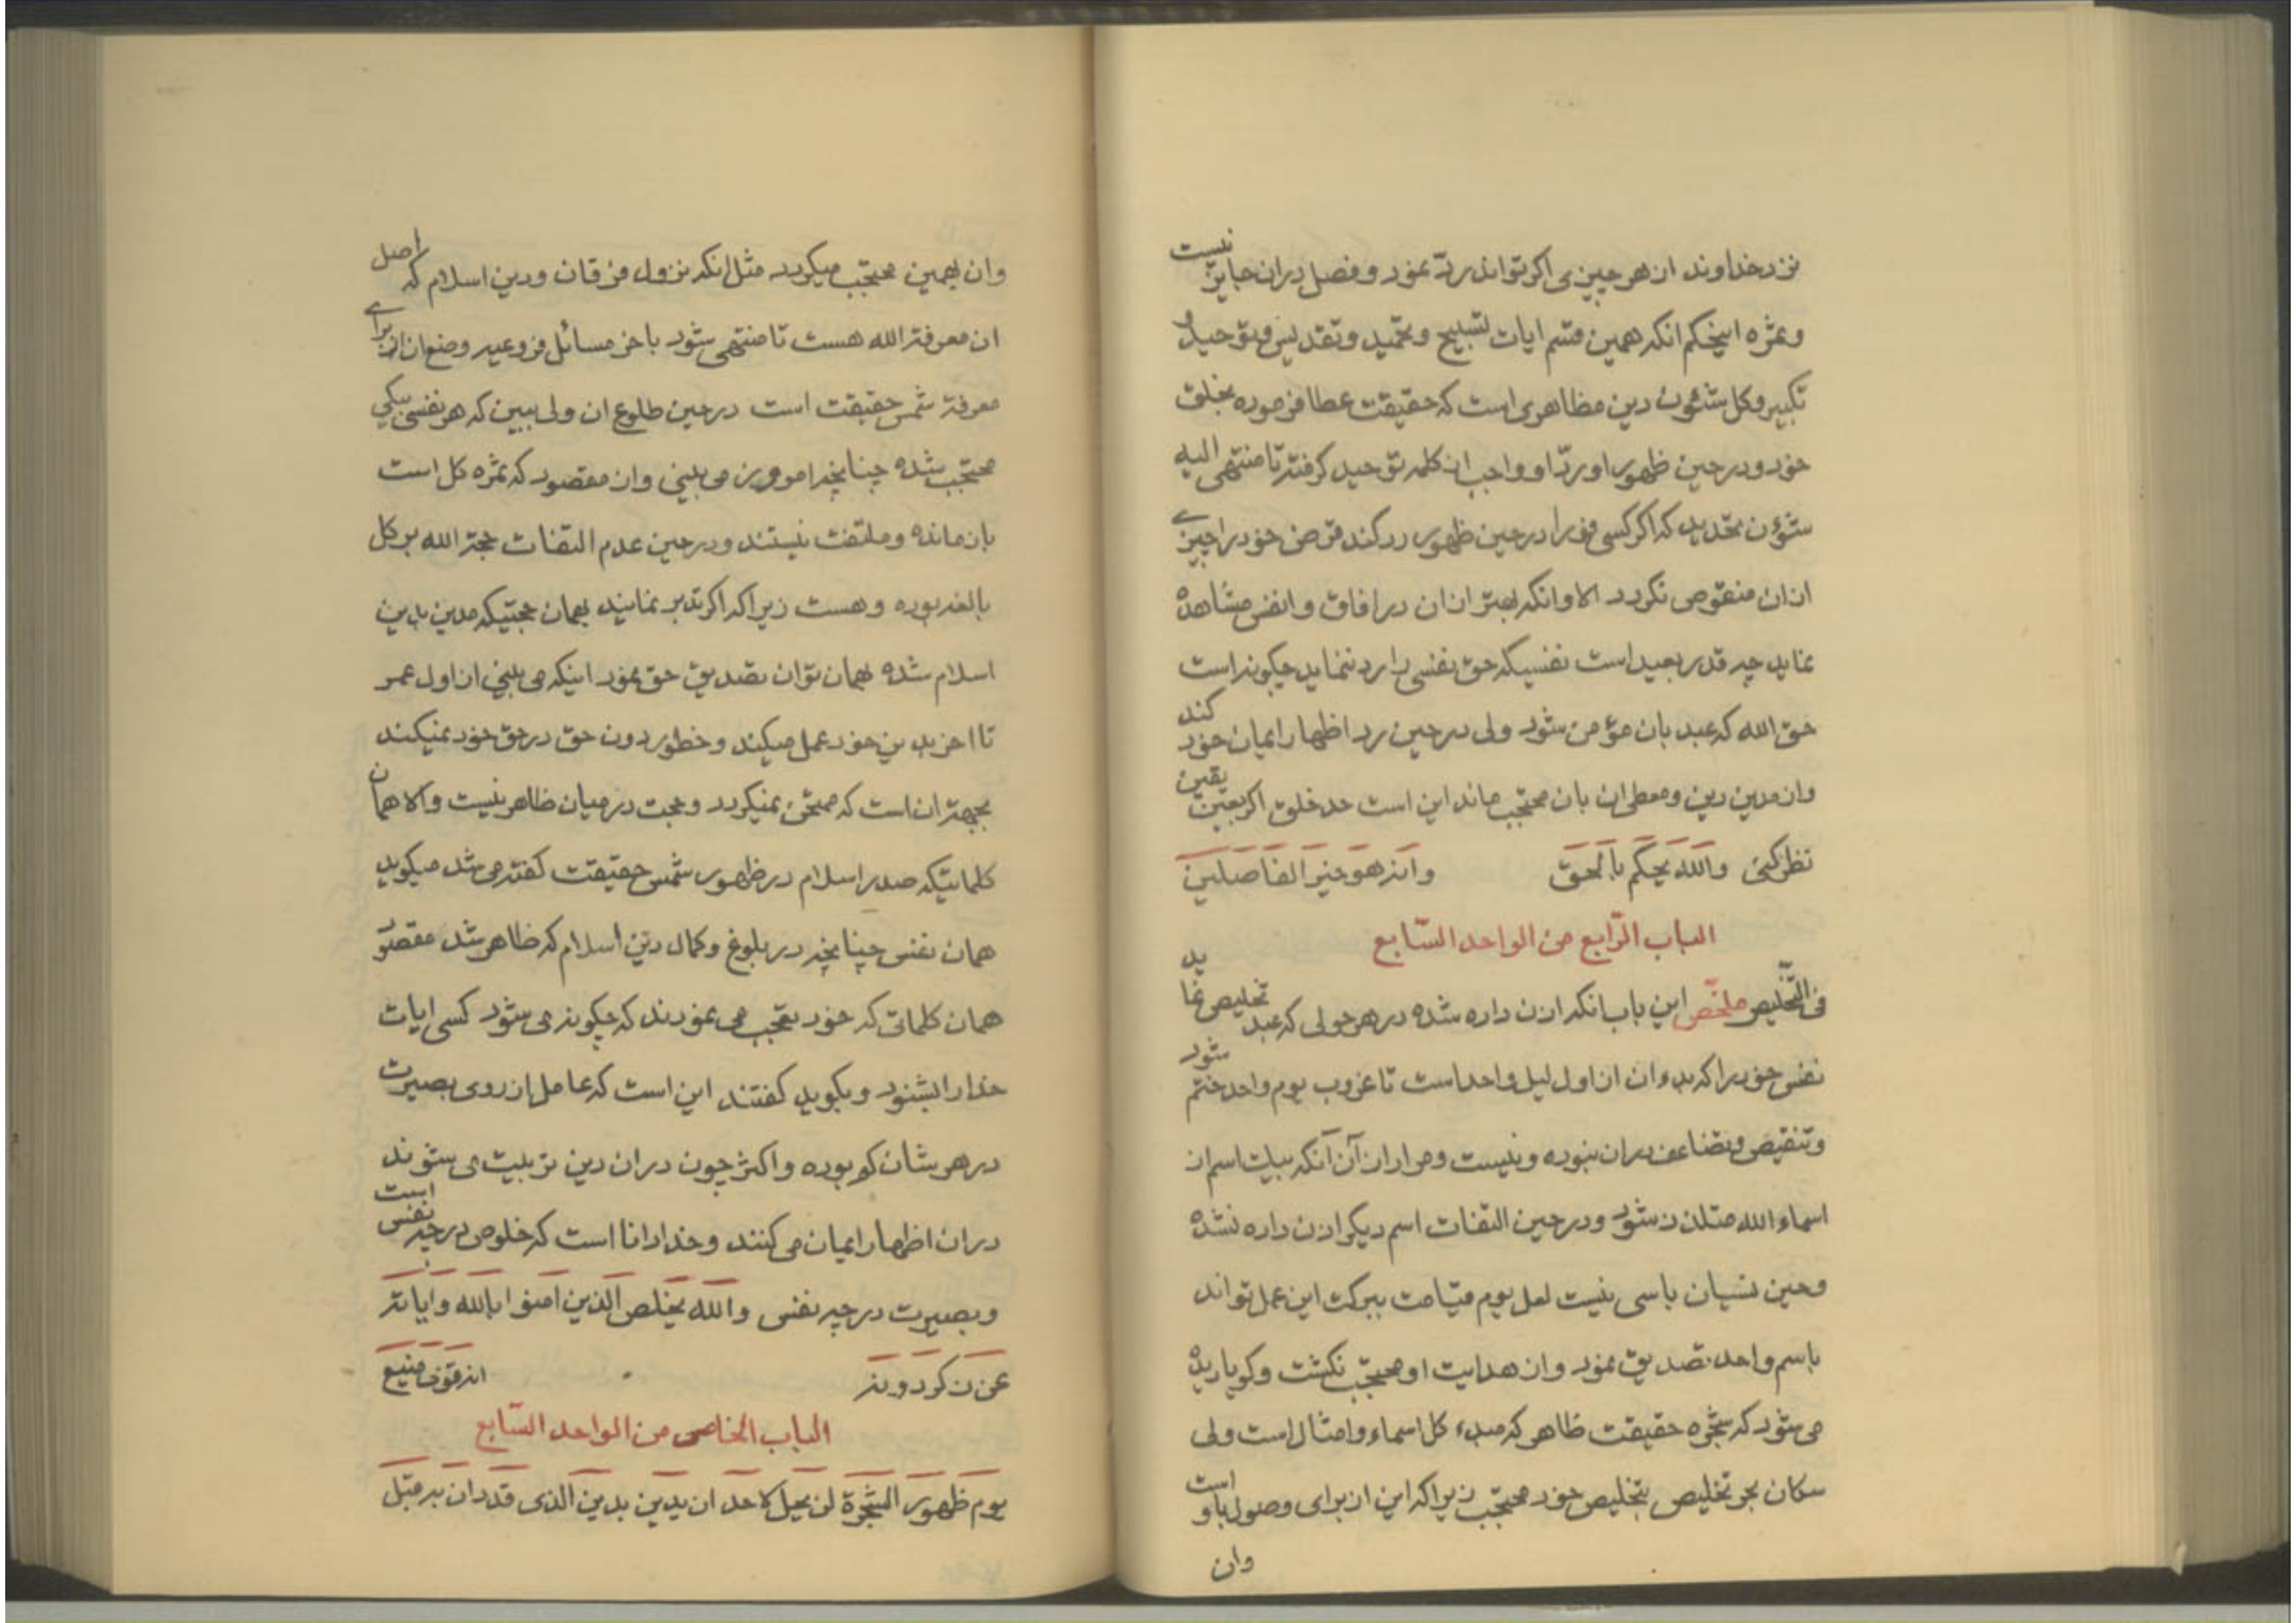 نزد خداوند از هر چیزی اکر تواند ردّ نمود و فصل دران جایز نیست
و ثمره اینحکم انکه همین قسم ایات تسبیح و تحمید و تقدیس و توحید و
تکبیر و کل شئون دین مظاهری است که حقیقت عطا فرموده بخلق
خود و در حین ظهور او ردّ او واجب از کلمه توحید کرفته تا منتهی الیه
شئون تحدید که اکر کسی در حین ظهور رد کند قرض خود را چیزے
از ان منقوص نکردد الا و انکه بهتر از ان در افاق و انفس مشاهده
نماید چه قدر بعید است نفسیکه حق نفسی را رد ننماید چکونه است
حق الله که عبد بان مؤمن شود ولی در حین رد اظهار ایمان خود کند
و از مدین دین و معطی ان بان محتجب ماند این است حد خلق اکر بعین یقین
نظر کنی والله یحکم بالحق وانه هو خیر الفاصلین
الباب الرّابع من الواحد السّابع
فی التّخلیص ملخّص این باب انکه اذن داده شده در هر حولی که عبد تخلیص نماید
نفس خود را که بدء ان از اول لیل واحد است تا غروب یوم واحد ختم شود
و تنقیص و تضاعف دران نبوده و نیست و مراد از آن آنکه بیک اسم از
اسماء الله متلذذ شود و در حین التفات اسم دیکر اذن داده نشده
و حین نسیان باسی نیست لعل یوم قیامت ببرکت این عمل تواند
باسم واحد تصدیق نمود و از هدایت او محتجب نکشت و کویا دیده
می شود که شجره حقیقت ظاهر که مبدء کل اسماء و امثال است ولی
سکان بحر تخلیص بتخلیص خود محتجب زیرا که این از برای وصول باو است
وان
وان بهمین محتجب میکردد مثل انکه نزول فرقان و دین اسلام که اصل
ان معرفة الله هست تا منتهی شود باخر مسائل فروعیه وضع ان از برای
معرفة شمس حقیقت است در حین طلوع ان ولی ببین که هر نفسی بیکی
محتجب شده چنانچه امروز می بینی و از مقصود که ثمره کل است
باز مانده و ملتفت نیستند و در حین عدم التفات حجة الله بر کل
بالغه بوده و هست زیرا که اکر تدبر نمایند بهمان حجتیکه مدین بدین
اسلام شده بهمان توان تصدیق حق نمود اینکه می بینی از اول عمر
تا اخر بدین خود عمل میکند و خطور دون حق در حق خود نمیکند
بجهة ان است که ممتحن نمیکردد و حجت در میان ظاهر نیست والا همان
کلماتیکه صدر اسلام در ظهور شمس حقیقت کفته می شد میکوید
همان نفس چنانچه در بلوغ و کمال دین اسلام که ظاهر شد مقصود
همان کلماتی که خود تعجب می نمودند که چکونه می شود کسی ایات
خدا را بشنود و بکوید کفتند این است که عامل از روی بصیرت
در هر شان کم بوده و اکثر چون دران دین تربیت می شوند
دران اظهار ایمان می کنند و خدا دانا است که خلوص در چه نفسی است
و بصیرت در چه نفسی والله یخلص الذین امنوا بالله وایاته
عن ذکر دونه انه قوی منیع
الباب الخامس من الواحد السّابع
یوم ظهور الشجرة لن یحل لاحد ان یدین بدین الذی قد دان به قبل